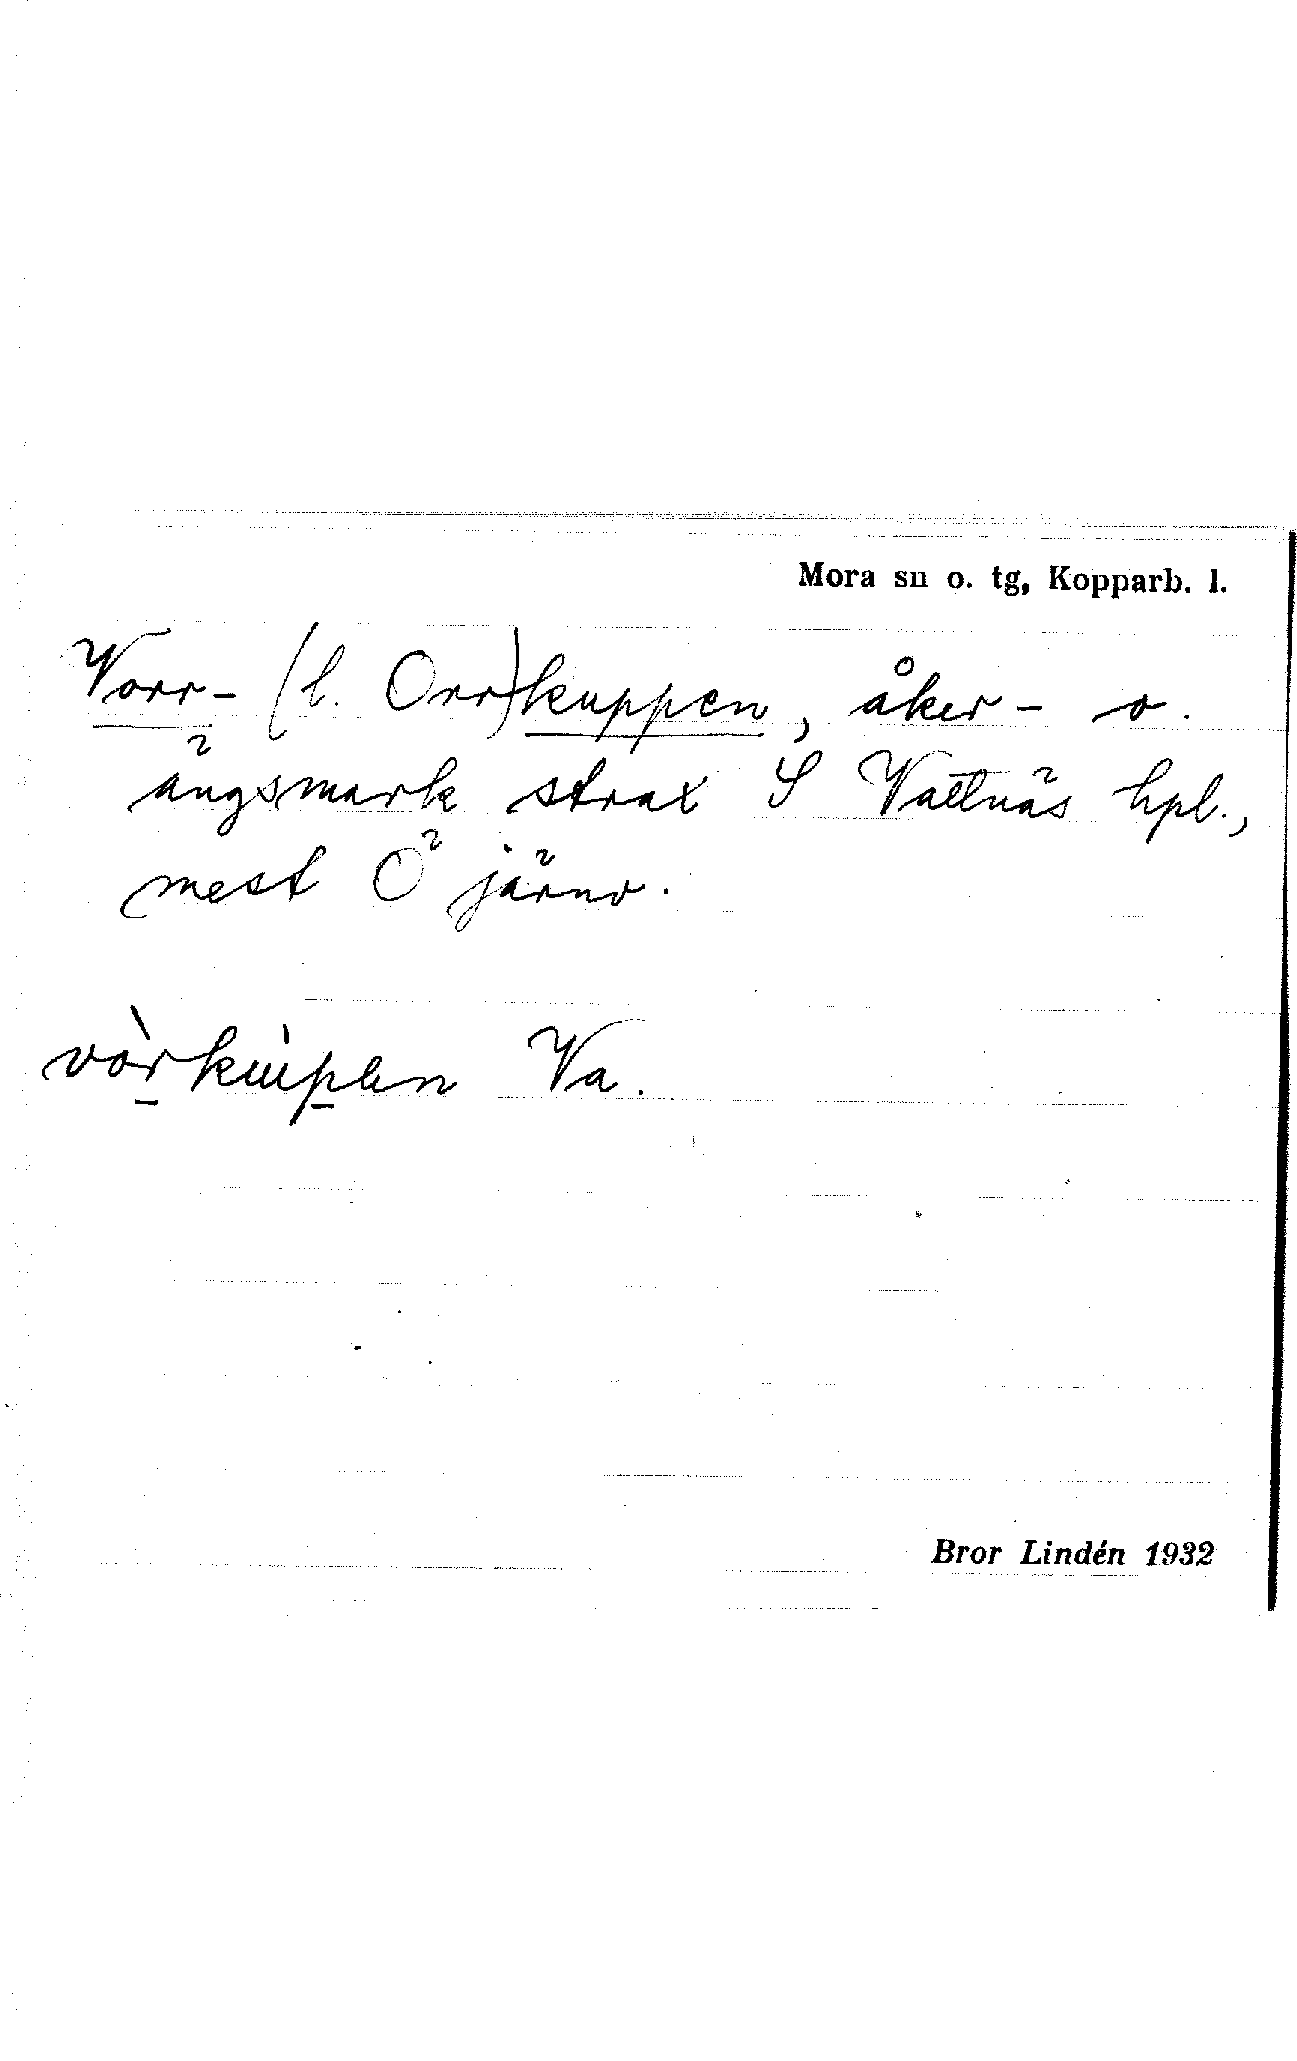 Mora sn o. tg, Kopparb. l.
Vorr- (l. Orr)kuppen, åker- o.
ängsmark strax S Vattnäs hpl.,
mest Ö järnv.
Va.
Bror Lindén 1932